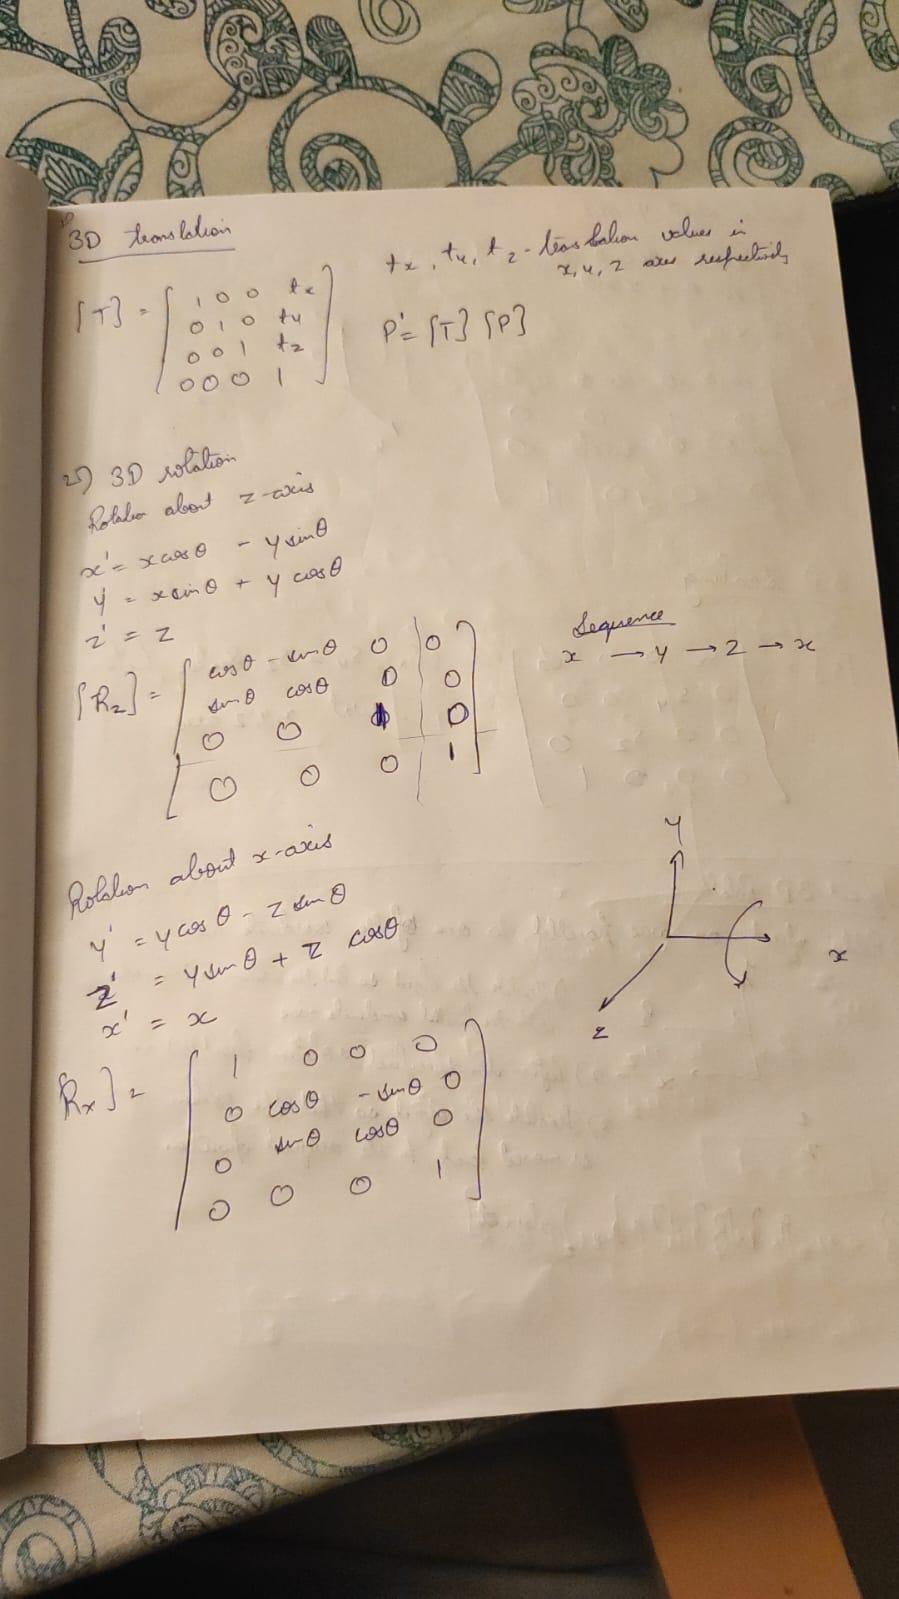 1) 3D translation
tx, ty, tz - translation values in
x, y, z axes respectively
[T] = [ 1 0 0 tx
0 1 0 ty
0 0 1 tz
0 0 0 1 ]
P' = [T] [P]
2) 3D rotation
Rotation about z-axis
x' = x cos θ - y sin θ
y' = x sin θ + y cos θ
z' = z
[Rz] = [ cos θ - sin θ 0 0
sin θ cos θ 0 0
0 0 1 0
0 0 0 1 ]
Sequence
x → y → z → x
Rotation about x-axis
y' = y cos θ - z sin θ
z' = y sin θ + z cos θ
x' = x
Rx] = [ 1 0 0 0
0 cos θ - sin θ 0
0 sin θ cos θ 0
0 0 0 1 ]
y
x
z